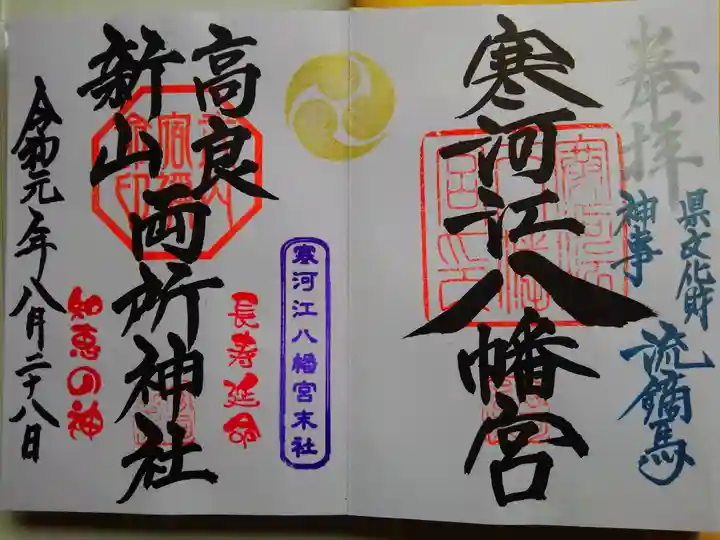 奉拝
県文化財
神事
流鏑馬
寒河江八幡宮
寒河江八幡宮末社
高良
新山
両所神社
長寿延命
知恵の神
令和元年八月二十八日